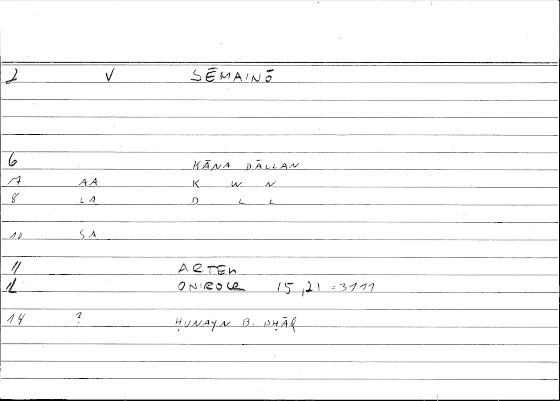 2 V SĒMAINŌ
6 KĀNA DĀLLAN
7 AA K W N
8 LA D L L
10 SA
11 ARTEM
12 ONIROCR 15,21 = 31 11
14 ? ḤUNAYN B. ISḤĀQ